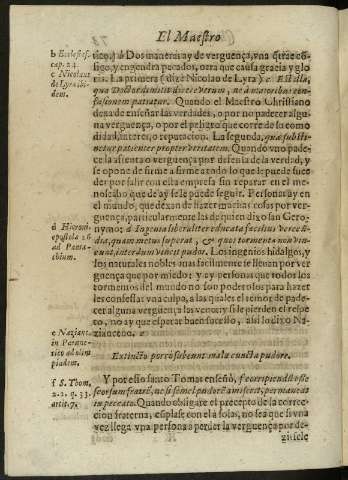 El Maestro
b Ecclesiast.
cap. 24
c Nicolaus
de Lyra ibi-
dem.
tico. b Dos maneras ay de verguença, vna q̃ trae cõ-
sigo, y engendra pecados, otra que causa gracia y glo
ria. La primera (dize Nicolao de Lyra) c Est illa,
qua Doctor dimittit dicere verum, ne à maioribus con-
fusionem patiatur. Quando el Maestro Christiano
dexa de enseñar las verdades, o por no padecer algu-
na verguença, o por el peligro que corre de su como
didad, interes, o reputacion. La segunda, qua substi-
netur patienter propter veritatem. Quando vno pade-
ce la afrenta o verguença por defensa de la verdad, y
se opone de firme a firme a todo lo que le puede suce
der por salir con esta empresa sin reparar en el me-
noscabo que de ay se le puede seguir. Personas ay en
el mundo, que dexan de hazer muchas cosas por ver-
guença, particularmente las de quien dixo san Gero-
d Hieron.
epistola 26
ad Pama-
chium.
nymo: d Ingenia liberaliter educata facilius verecũ-
dia, quam metus superat, & quos tormenta non vin-
cunt, interdum vincit pudor. Los ingenios hidalgos, y
los naturales nobles mas facilmente se lleuan por ver
guença que por miedo: y ay personas que todos los
tormentos del mundo no son poderosos para hazer
les confessar vna culpa, a las quales el temor de pade-
cer alguna verguença las vence: y si se pierden el respe-
to, no ay que esperar buen sucesso, assi lo dixo Na-
e Nazianc.
in Parane-
tico ad olim
piadem.
zianceno. e
Extincto porrò subeunt mala cuncta pudore.
f S. Thom.
2. 2. q. 33.
artic. 7.
Y por esso santo Tomas enseñò, f corripiendus est
seorsum frater, ne si semel pudorẽ amiserit, permaneat
in peccato. Quando obligare el precepto de la correc-
cion fraterna, esplasse con el a solas, no sea que si vna
vez llega vna persona a perder la verguença por de-
zirsele